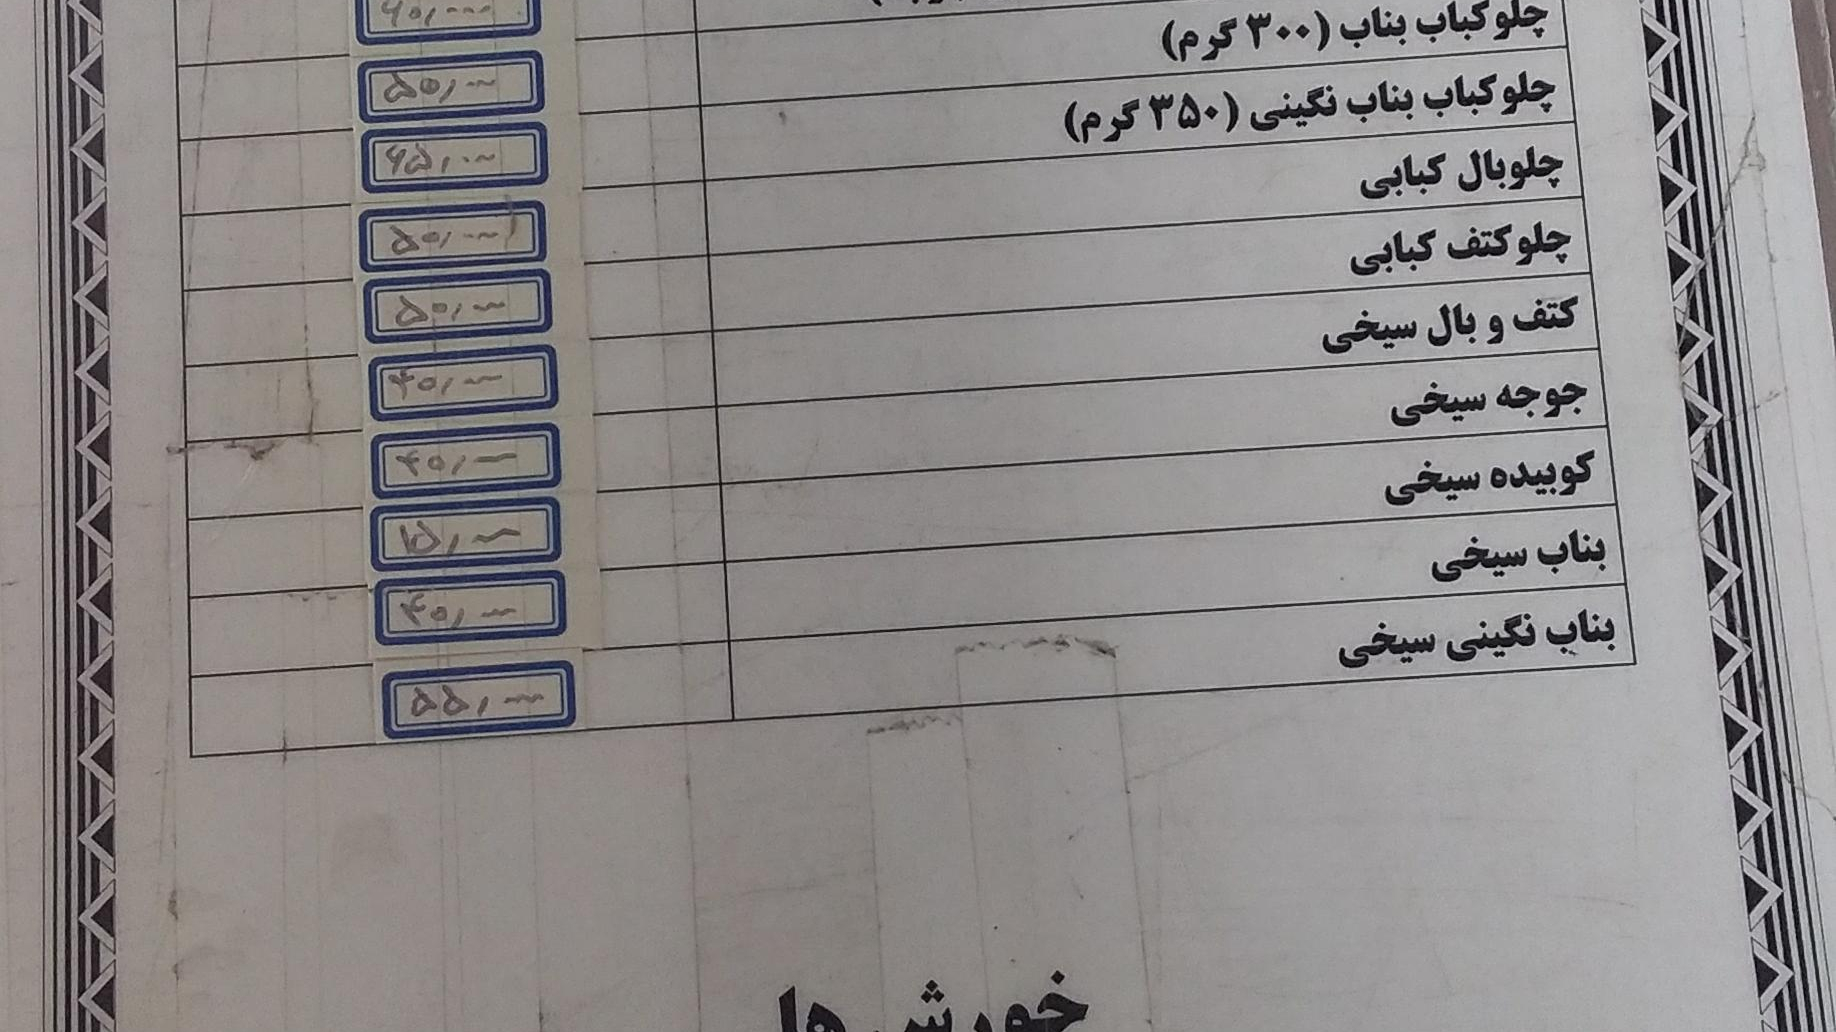 چلوکباب بناب (۳۰۰ گرم) ۵۰,۰۰۰
چلوکباب بناب نگینی (۳۵۰ گرم) ۶۵,۰۰۰
چلوبال کبابی ۵۰,۰۰۰
چلوکتف کبابی ۵۰,۰۰۰
کتف و بال سیخی ۴۰,۰۰۰
جوجه سیخی ۴۰,۰۰۰
کوبیده سیخی ۱۵,۰۰۰
بناب سیخی ۴۰,۰۰۰
بناب نگینی سیخی ۵۵,۰۰۰
خورش ها